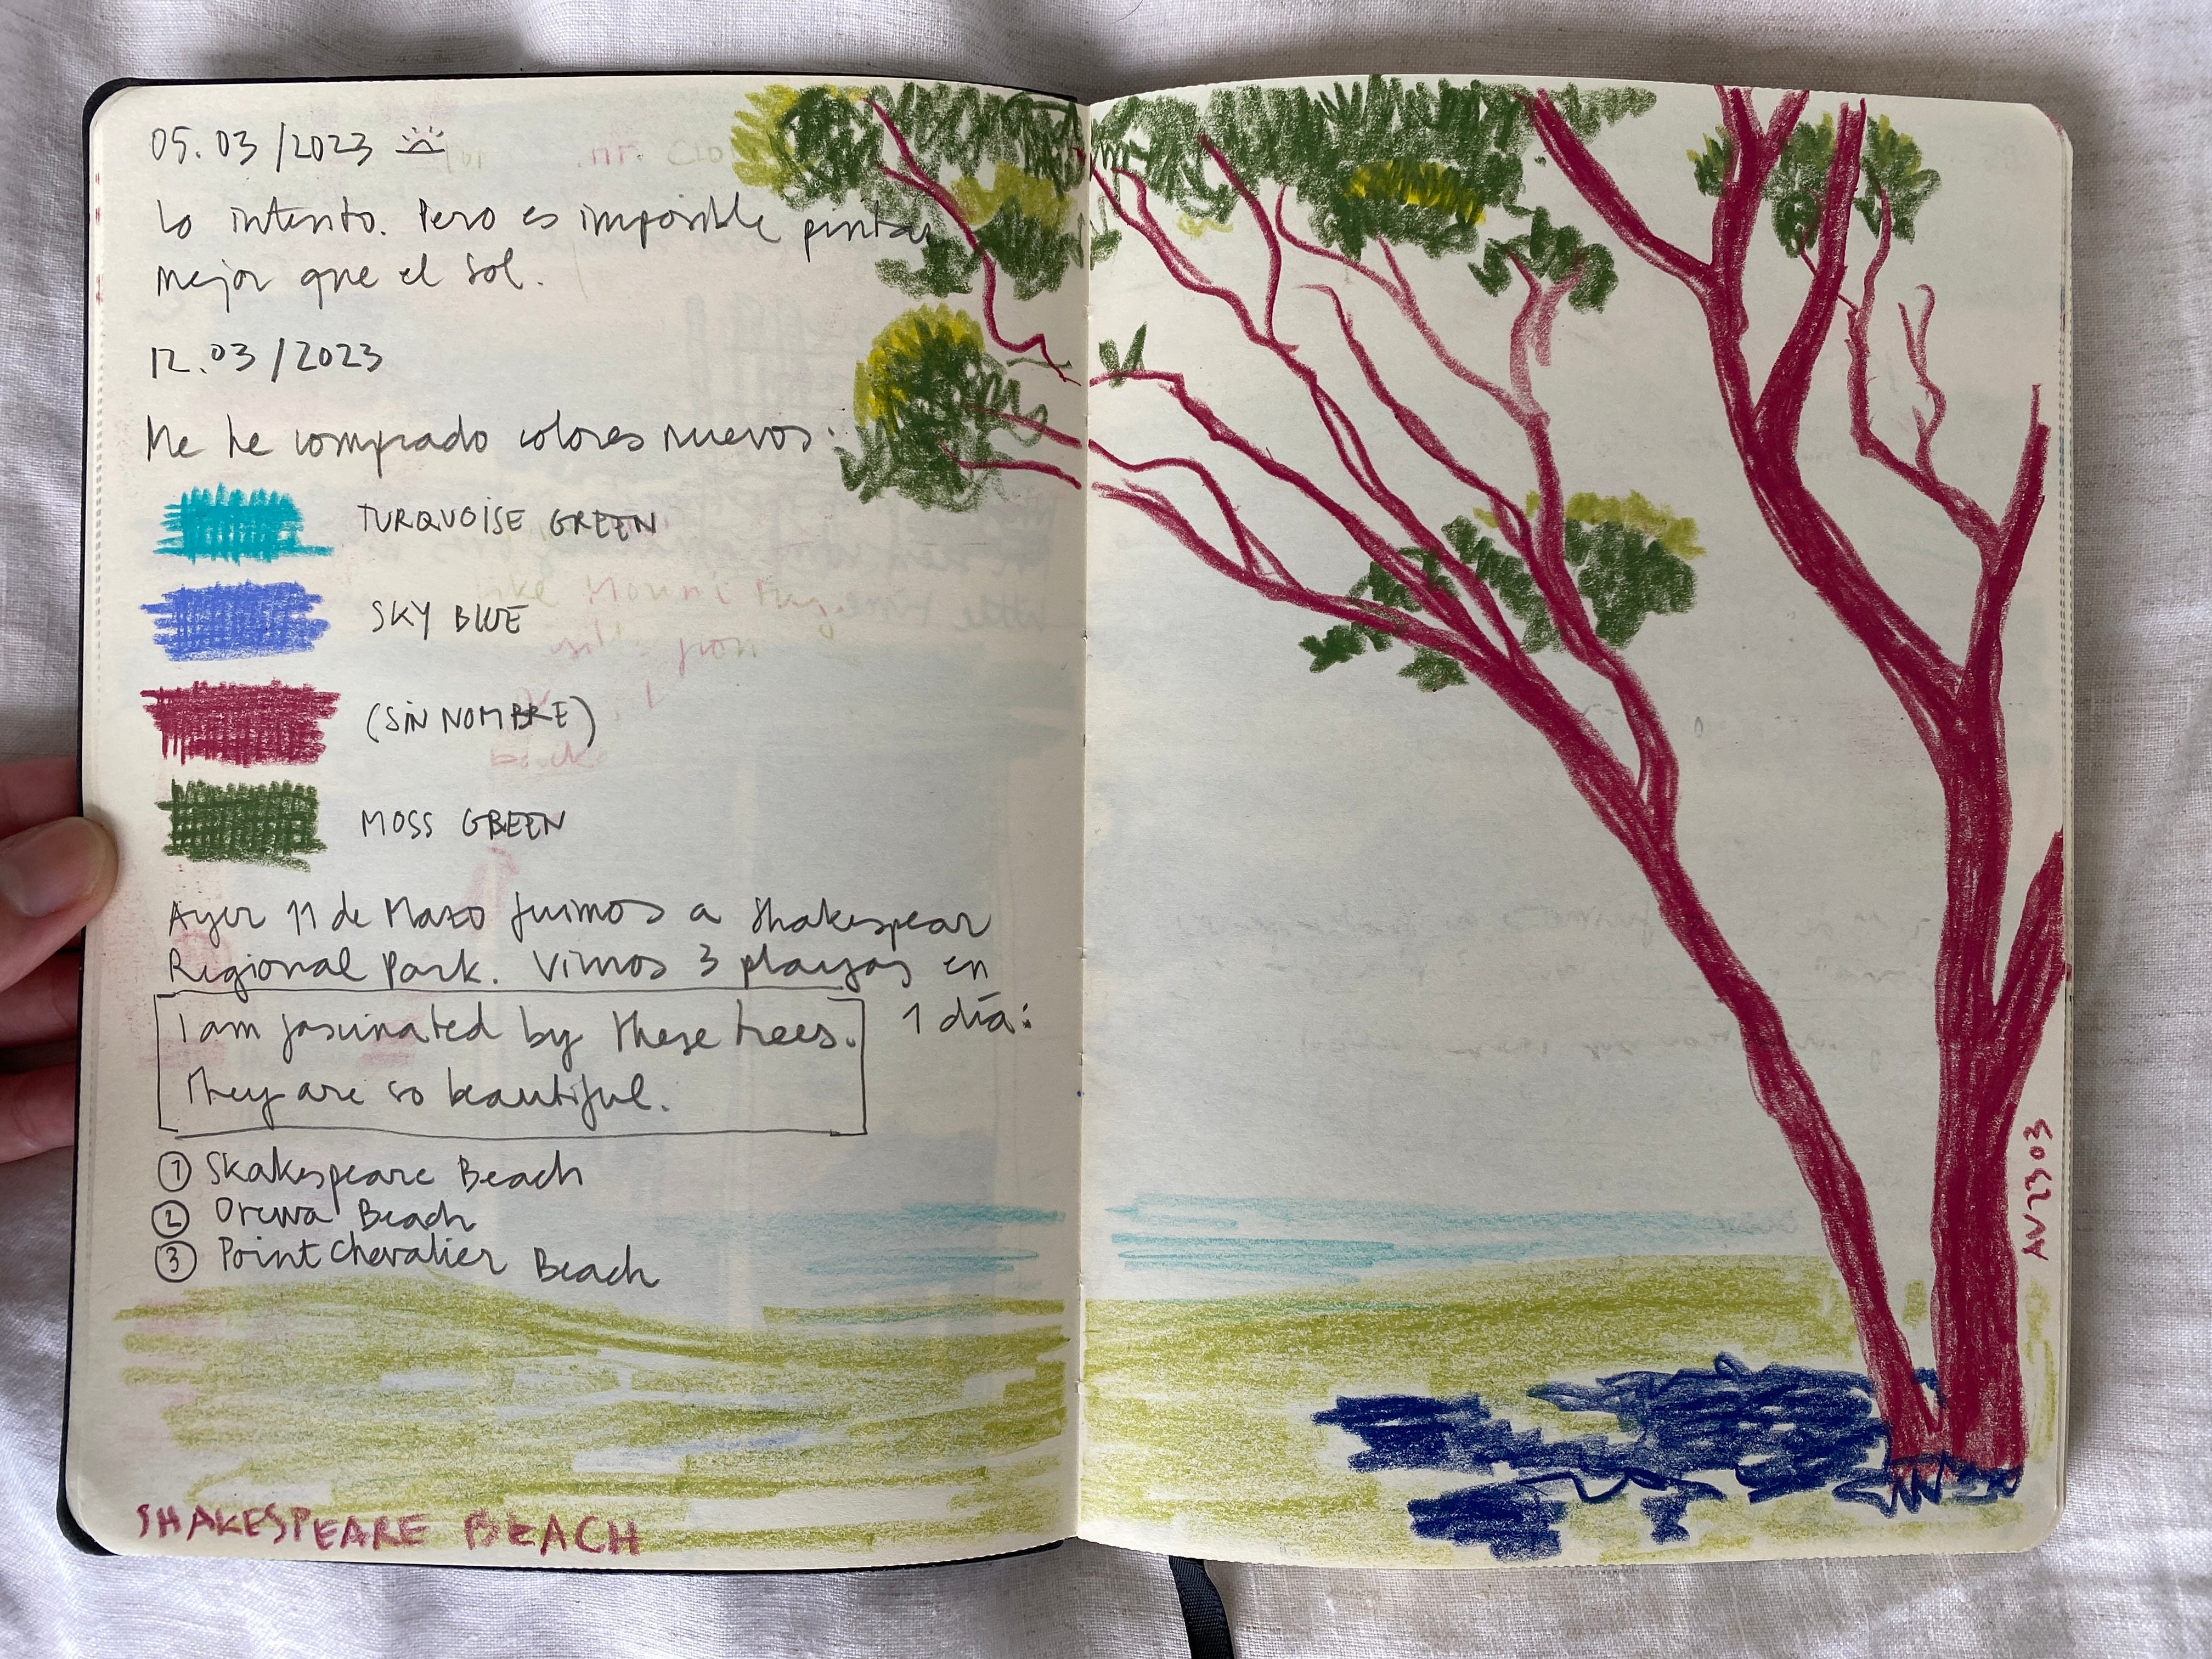 05.03/2023
Lo intento. Pero es imposible pintar
mejor que el Sol.
12.03/2023
Me he comprado colores nuevos:
TURQUOISE GREEN
SKY BLUE
(SIN NOMBRE)
MOSS GREEN
Ayer 11 de Mazo fuimos a Shakespear
Regional Park. Vimos 3 playas en
1 día:
I am fascinated by these trees.
They are so beautiful.
① Skakespeare Beach
② Orewa Beach
③ Point Chevalier Beach
SHAKESPEARE BEACH
AV2303